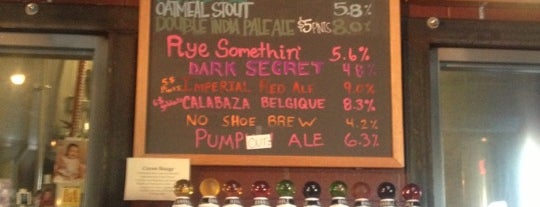 OATMEAL STOUT 5.8%
DOUBLE INDIA PALE ALE $5 PINTS 8.0%
Rye Somethin' 5.6%
DARK SECRET 4.8%
$5 IMPERIAL RED ALE 9.0%
CALABAZA BELGIQUE 8.3%
NO SHOE BREW 4.2%
PUMP OUT ALE 6.3%